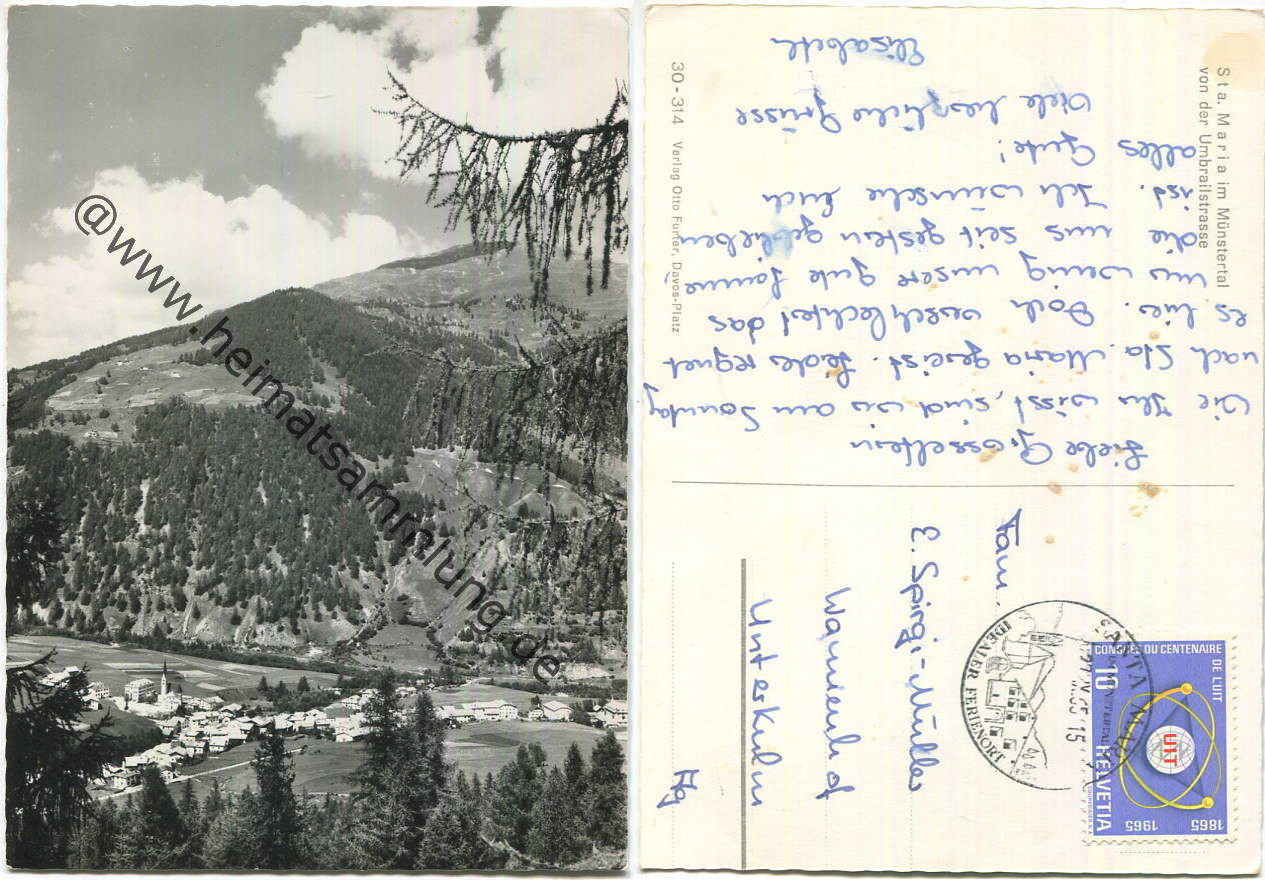 @www.heimatsammlung.de
Sta. Maria im Münstertal
von der Umbrailstrasse
30 - 314 Verlag Otto Furter, Davos-Platz
Liebe Grosseltern
Wie Ihr wisst, sind wir am Sonntag
nach Sta. Maria gereist. Leider regnet
es hier. Doch verschlechtert das
uns wenig unsere gute Laune,
die uns seit gestern geblieben
ist. Ich wünsche Euch
alles Gute!
Viele herzliche Grüsse
Elisabeth
Fam.
E. Spirgi-Müller
Wannenhof
Unterkulm
Ag
SANTA MARIA
IM MÜNSTERTAL
IDEALER FERIENORT
CONGRÈS DU CENTENAIRE
DE L'UIT
10
UIT
HELVETIA
1865 1965